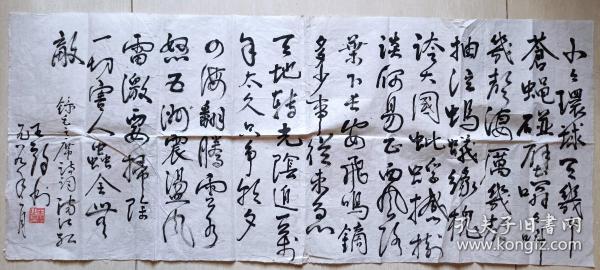 小々環球有幾个
蒼蝇碰壁嗡々
幾声凄厲幾声
抽泣螞蟻缘槐
誇大國蚍蜉撼樹
談何易正西風落
葉下长安飛鳴鏑
多少事從来急
天地转光陰迫一萬
年太久只争朝夕
四海翻騰雲水
怒五洲震盪風
雷激要掃除
一切害人蟲全無
敵
錄毛主席詩詞满江红
孔夫子旧书网
www.kongfz.com